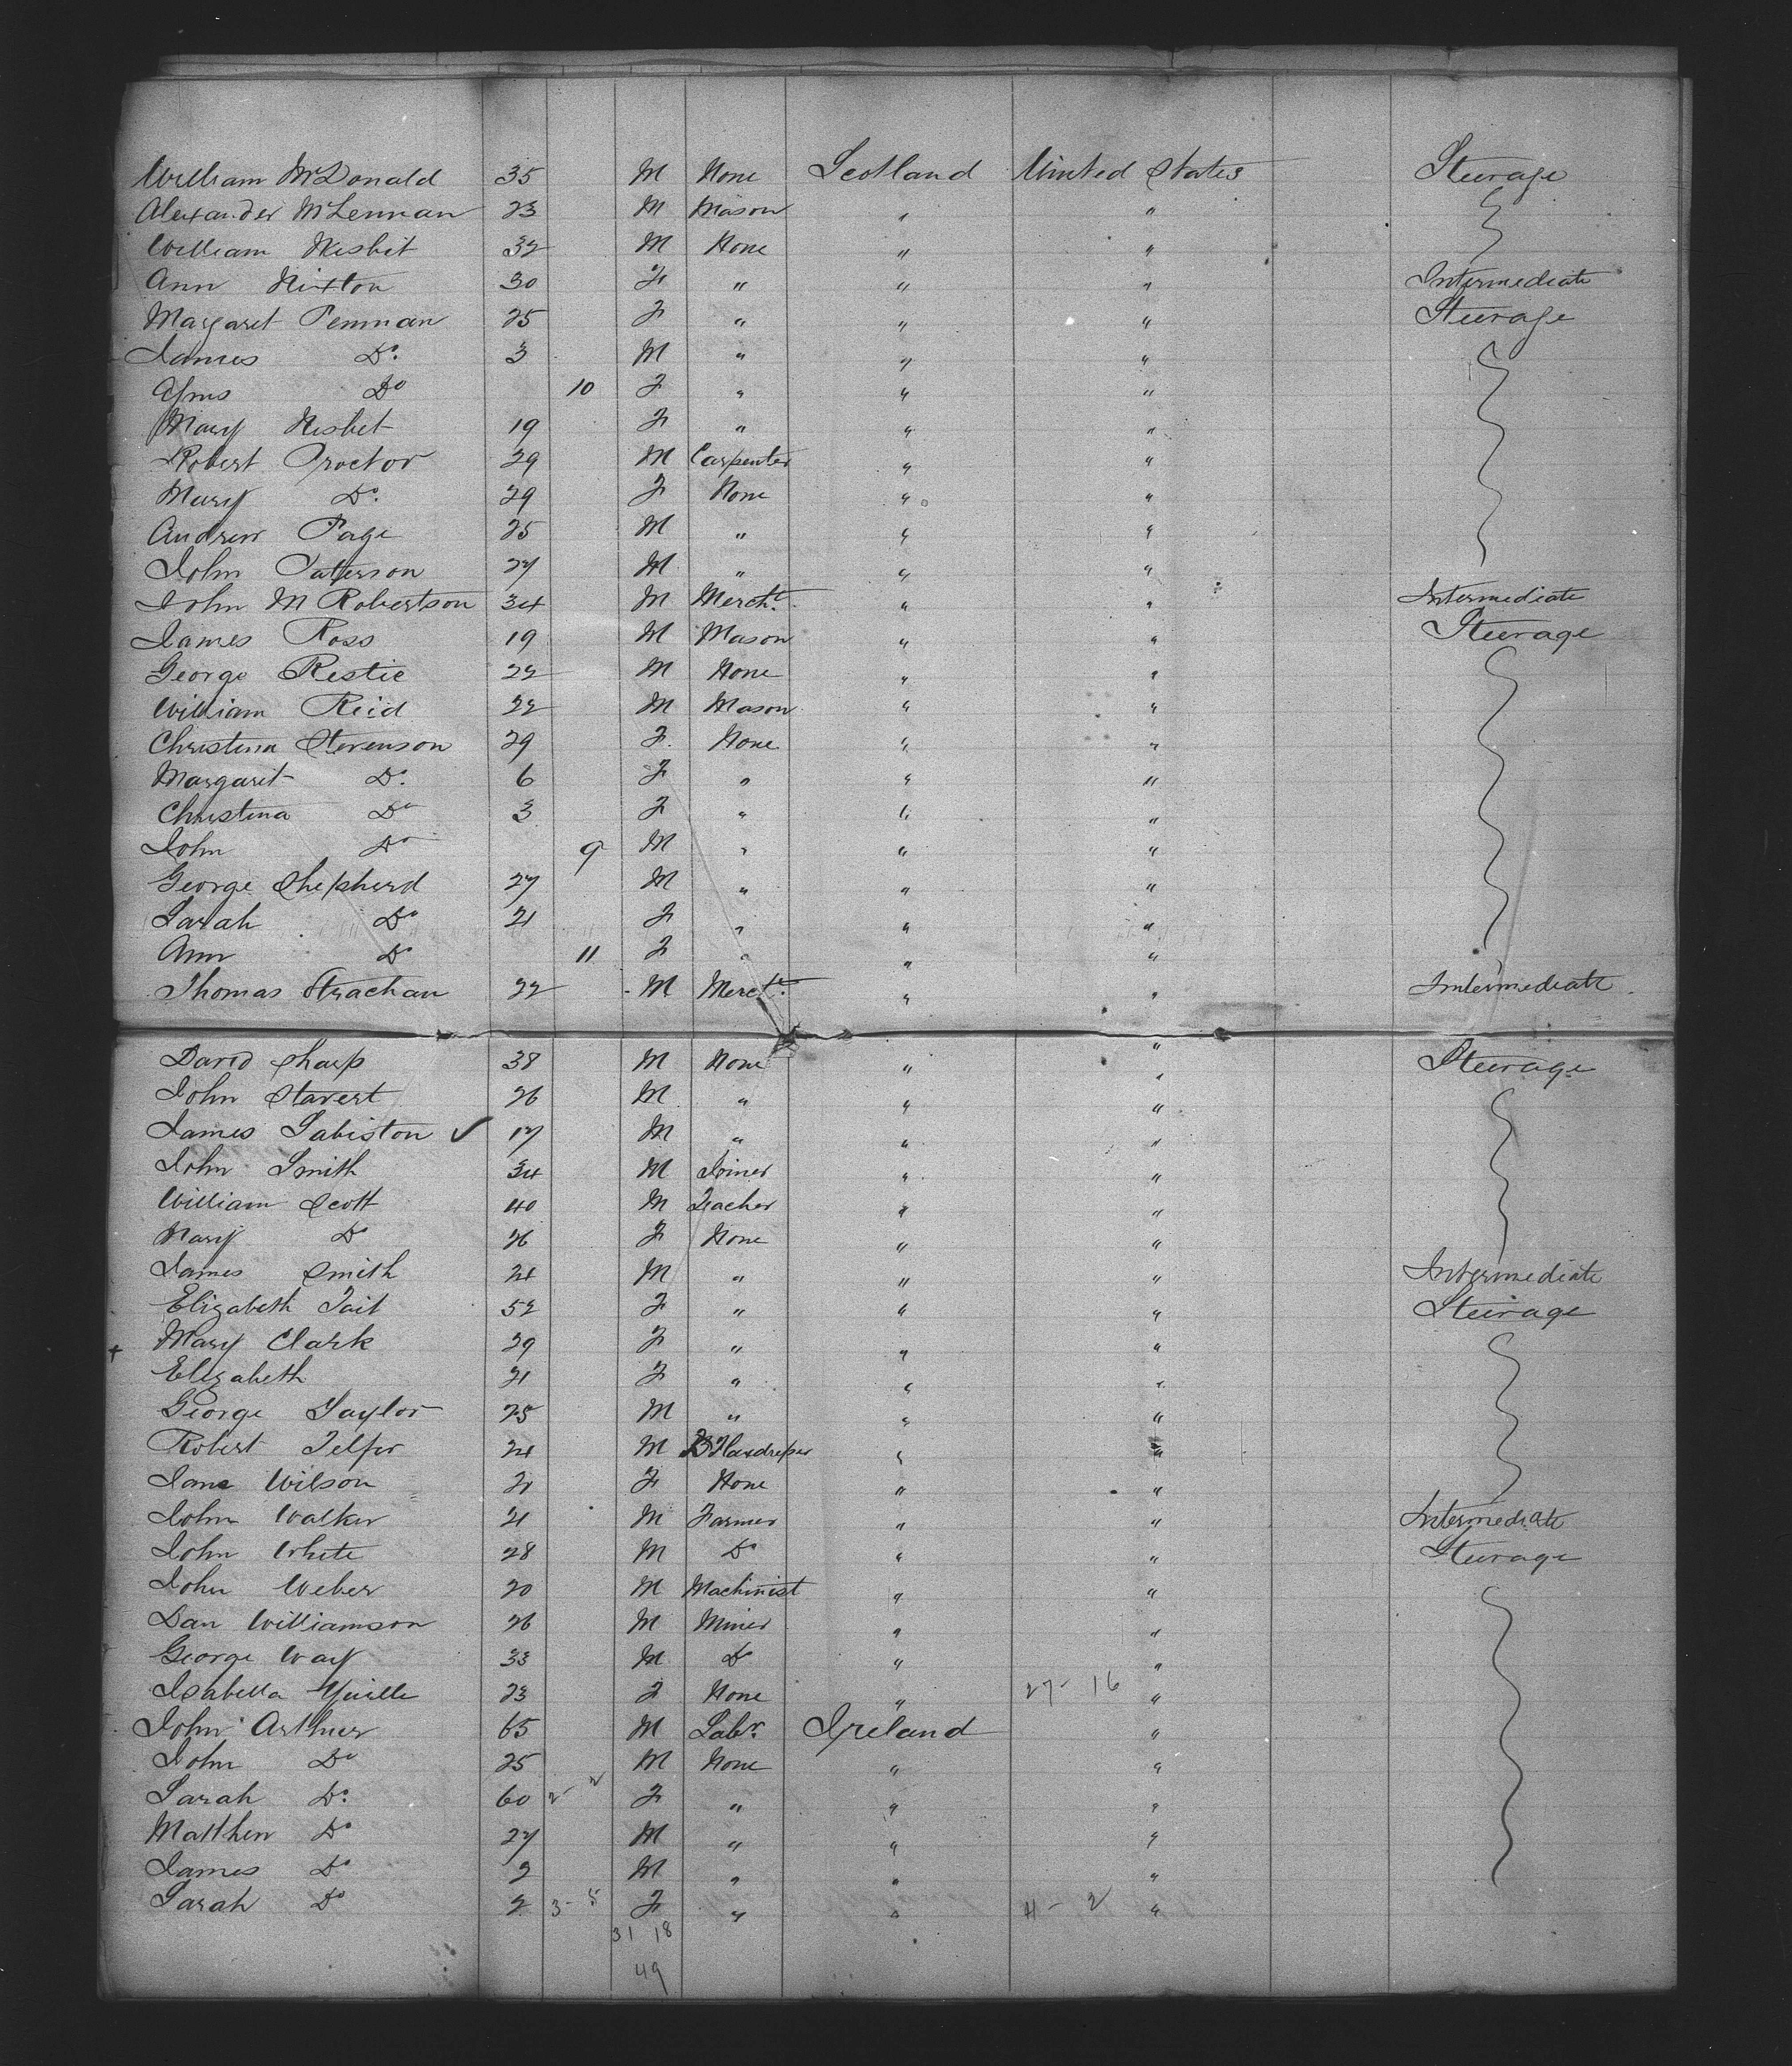 William McDonald 35 M None Scotland United States Steerage
Alexander McLennan 23 M Mason " "
William Nisbit 32 M None " "
Ann Nixton 30 F " " " Intermediate
Margaret Penman 25 F " " " Steerage
James Do. 3 M " " "
Do 10 F " " "
Mary Nisbet 19 F " " "
Robert Proctor 29 M Carpenter " "
Mary Do. 29 F None " "
Andrew Page 25 M " " "
John Paterson 27 M " " "
John M Robertson 34 M Mercht. " " Intermediate
James Ross 19 M Mason " " Steerage
George Restie 22 M None " "
William Reid 22 M Mason " "
Christina Stevenson 29 F. None " "
Margaret Do. 6 F " " "
Christina Do 3 F " " "
John Do 9 M " " "
George Shepherd 27 M " " "
Sarah Do 21 F " " "
Ann Do 11 F " " "
Thomas Strachan 22 M Merct. " " Intermediate
"
David Sharp 38 M None " " Steerage
John Stavert 26 M " " "
James Sabiston ✓ 17 M " " "
John Smith 34 M Joiner " "
William Scott 40 M Teacher " "
Mary Do 26 F None " "
James Smith 24 M " " " Intermediate
Elizabeth Tait 52 F " " " Steerage
+ Mary Clark 29 F " " "
Elizabeth 21 F " " "
George Taylor 25 M " " "
Robert Telfer 24 M " "
Jane Wilson F None " "
John Walker 21 M Farmer " " Intermediate
John White 28 M Do " " Steerage
John Weber 20 M Machinist " "
Dan Williamson 26 M Miner " "
George Way 33 M Do " "
Isabella Yuille 23 F None " 27- 16 "
John Arthur 65 M Labr. Ireland "
John Do 25 M None " "
Sarah Do. 60 2 2 F " " "
Matthew Do 27 M " " "
James Do 2 M " " "
Sarah Do 2 3- 5 F " " 4- 2 "
31 18
49